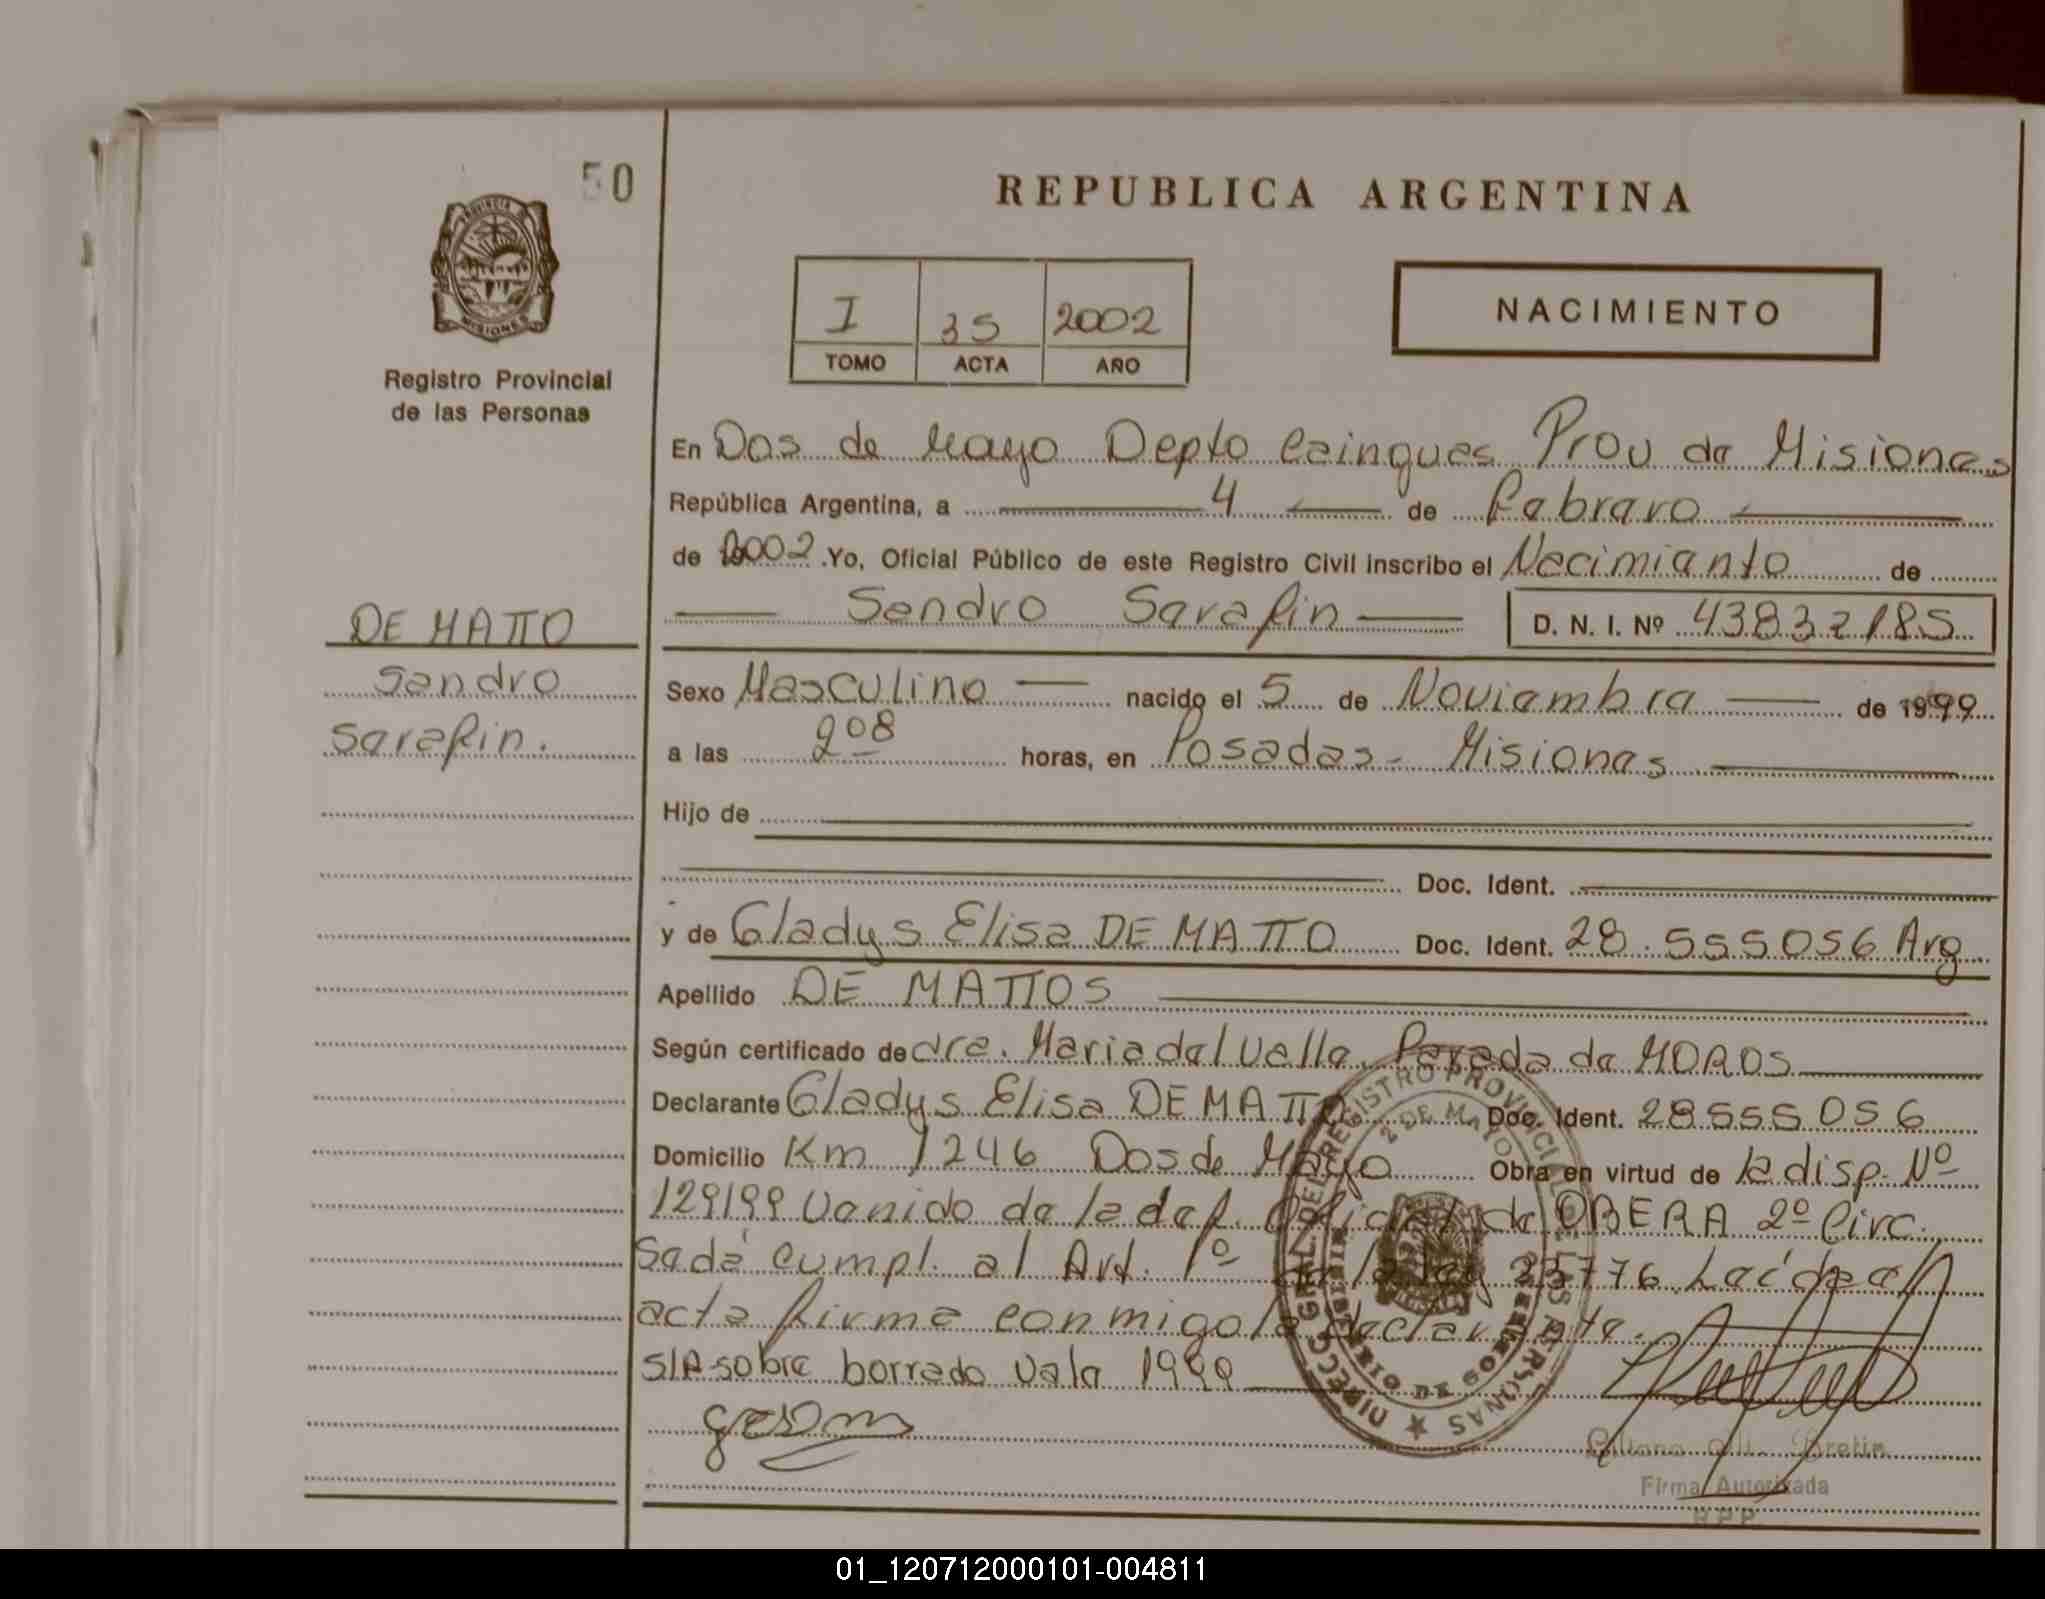 50
PROVINCIA DE
MISIONES
Registro Provincial
de las Personas
DE MATTO
Sandro
Serafin.
REPUBLICA ARGENTINA
I 35 2002
TOMO ACTA AÑO
NACIMIENTO
En Dos de Mayo Depto Cainguas Prov de Misiones
República Argentina, a 4 de Febrero
de 2002. Yo, Oficial Público de este Registro Civil inscribo el Nacimiento de
Sandro Serafin D. N. I. Nº 43832185
Sexo Masculino nacido el 5 de Noviembre de 1999
a las 208 horas, en Posadas - Misiones
Hijo de
Doc. Ident.
y de Gladys Elisa DE MATTO Doc. Ident. 28.555056 Arg
Apellido DE MATTOS
Según certificado de dra. Maria del Valle Parada de MOROS
Declarante Gladys Elisa DE MATTO Doc. Ident. 28555056
Domicilio Km 1246 Dos de Mayo Obra en virtud de la disp. Nº
129199 Venido de la def. Oficial de OBERA 2º Circ.
Sadá cumpl. al Art. 1º de la ley Leída el
acta firma conmigo la declarante.
S/A sobre borrado Vale 1999
DIRECC. GRAL. DEL REGISTRO PROVINCIAL DE LAS PERSONAS
2 DE MAYO
MISIONES
Firma Autorizada
R P P
01_120712000101-004811